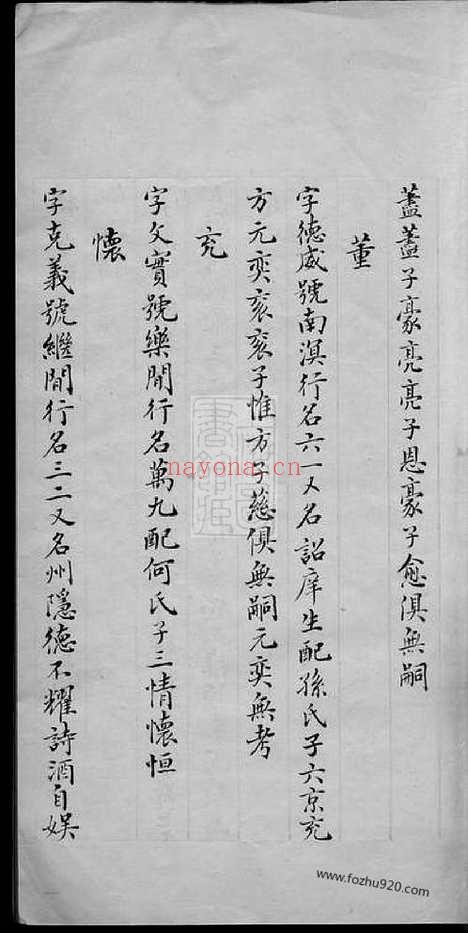 蓋蓋子豪亮亮子恩豪子愈俱無嗣
董
字德威號南溟行名六一又名詔庠生配孫氏子六京充
方元奕衮衮子惟方子慈俱無嗣元奕無考
充
字文實號樂閒行名萬九配何氏子三情懷恒
懷
字克義號繼閒行名三二又名州隱德不耀詩酒自娛
nayona.cn
www.fozhu920.com